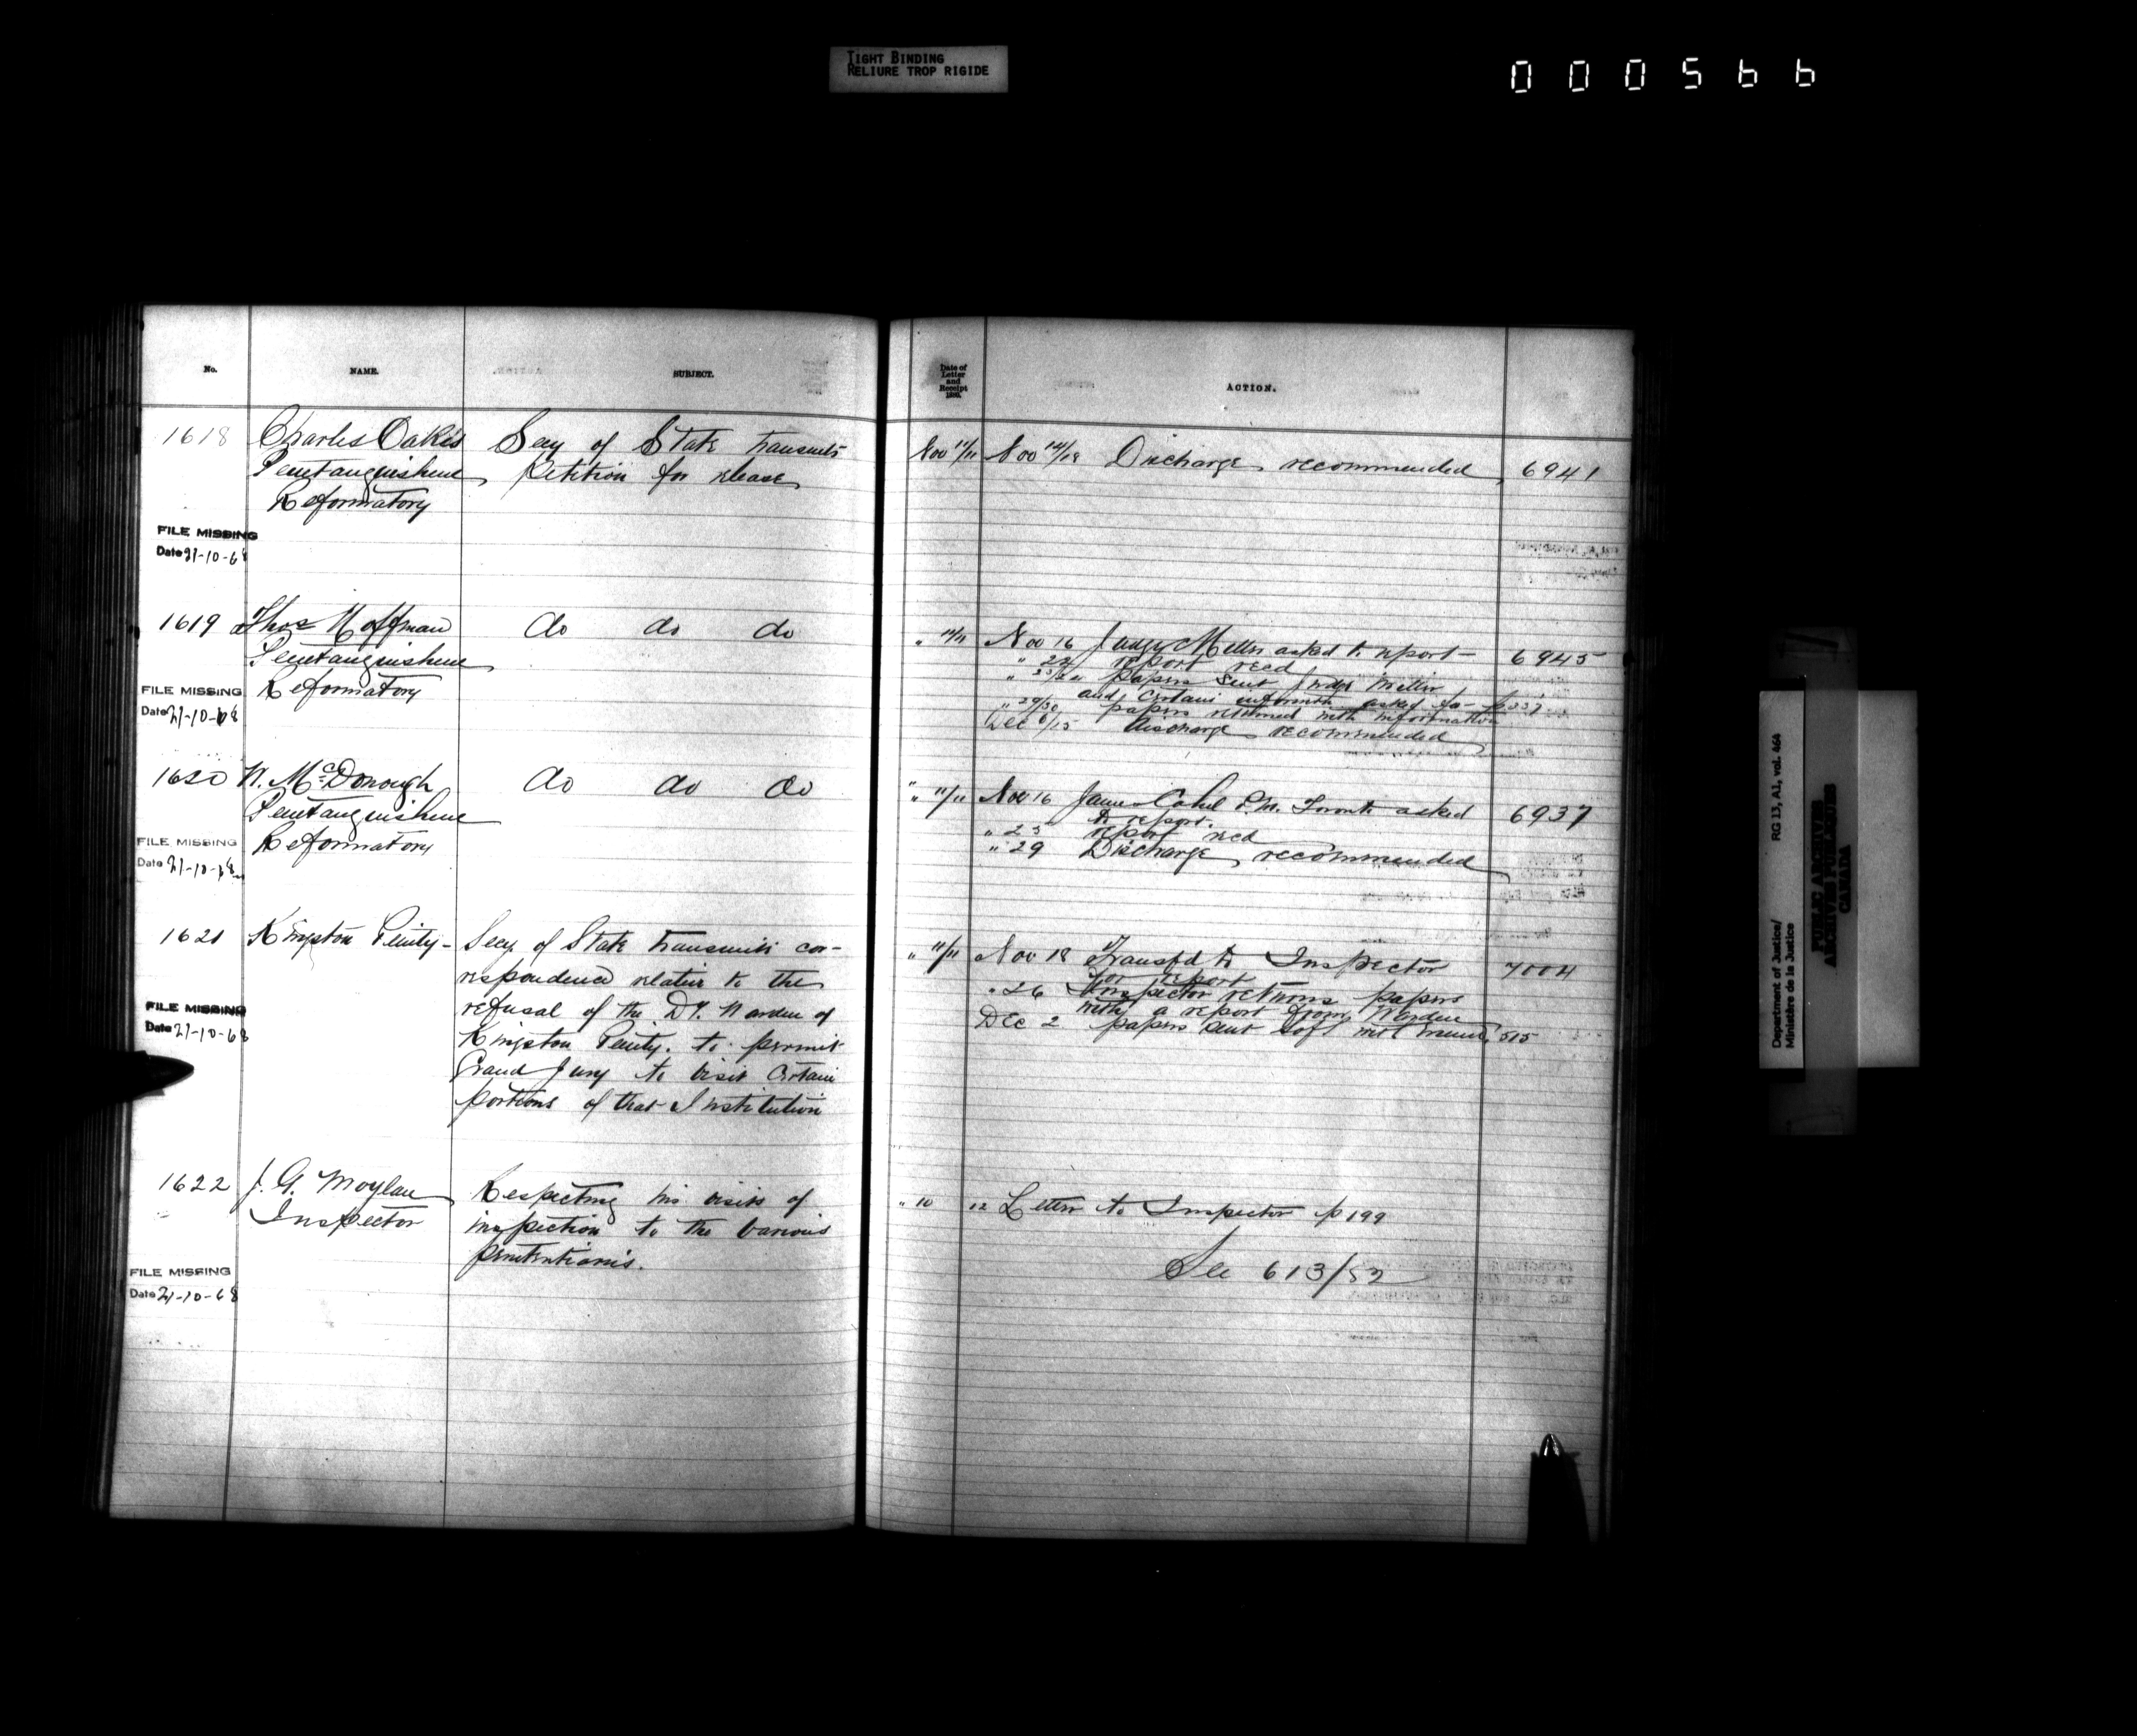 TIGHT BINDING
RELIURE TROP RIGIDE
000566
No.
NAME.
SUBJECT.
Date of
Letter
and
Receipt
1880.
ACTION.
1618
Charles Oakes
Penetanguishene
Reformatory
Secy of State transmits
Petition for release
Nov 11/11
Nov 12/18 Discharge recommended
6941
FILE MISSING
Date 21-10-68
1619
Thos Hoffman
Penetanguishene
Reformatory
do do do
" 11/11
Nov 16 Judge Miller asked to report —
" 22 report recd
papers sent Judge Miller
and certain informtn asked for — p 337
" 29/30 papers returned with information
Dec 6/15 discharge recommended
6945
FILE MISSING
Date 21-10-68
1620
W. McDonough
Penetanguishene
Reformatory
do do do
" 11/11
Nov 16 P.M. Toronto asked
to report.
" 25 report recd
" 29 Discharge recommended
6937
FILE MISSING
Date 21-10-68
1621
Kingston Penity —
Secy. of State transmits cor-
respondence relative to the
refusal of the Dy. Warden of
Kingston Penity. to permit
Grand Jury to visit certain
portions of that Institution
" 11/11
Nov 18 Transfd to Inspector
for report
" 26 Inspector returns papers
with a report from Warden
Dec 2 papers sent SofS with 515
7004
FILE MISSING
Date 21-10-68
1622
J. G. Moylan
Inspector
Respecting his visits of
inspection to the various
penitentiaries.
" 10
12 Letter to Inspector p 199
See 613/82
FILE MISSING
Date 21-10-68
Department of Justice/
Ministère de la Justice
RG 13, A1, vol. 464
PUBLIC ARCHIVES
ARCHIVES PUBLIQUES
CANADA